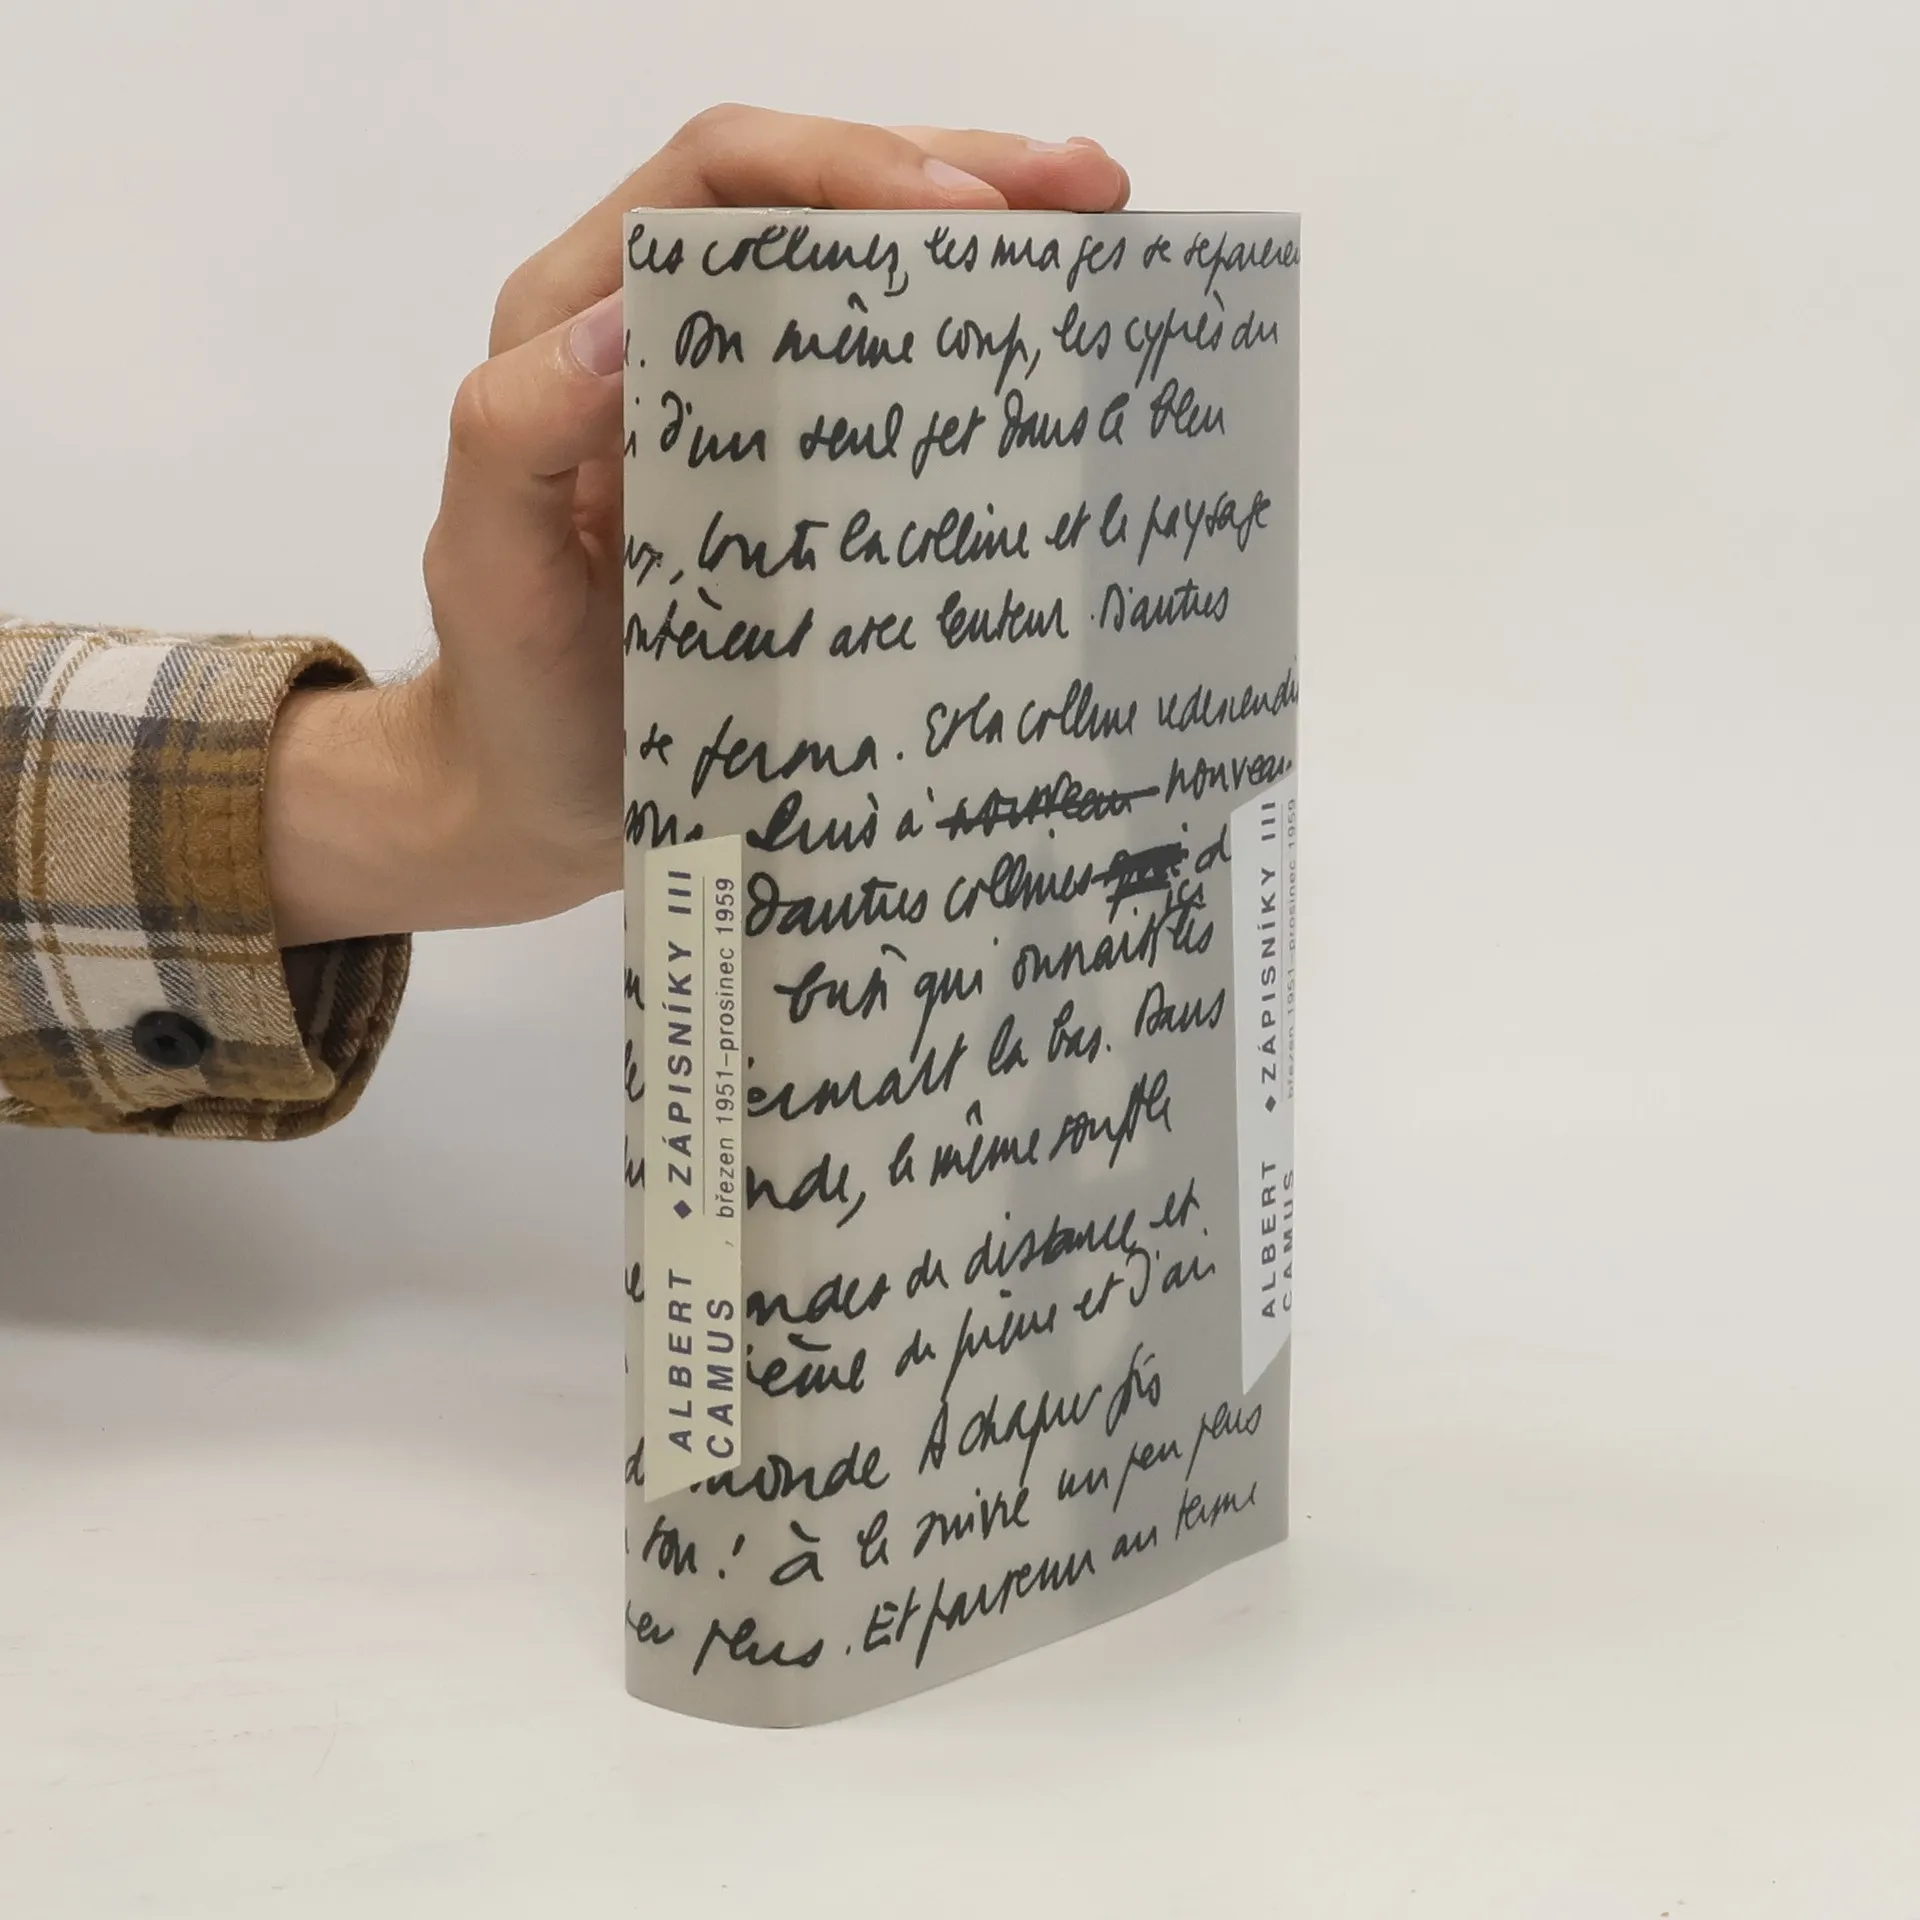 les collines, les nuages se séparèren
. Du même coup, les cyprès du
d'un seul jet dans le bleu
, toute la colline et le paysage
avec lenteur. D'autres
se ferma. Et la colline redescendi
Puis à nouveau nouveau
D'autres collines qui
qui les
là bas. Dans
nde, le même souffle
ndes de distance et
ième de pierre et j'ai
monde A chaque fois
son ! à le suivre un peu plus
peu plus. Et parvenu au terme
ALBERT CAMUS
◆ ZÁPISNÍKY III
březen 1951–prosinec 1959
ALBERT CAMUS
◆ ZÁPISNÍKY III
březen 1951–prosinec 1959